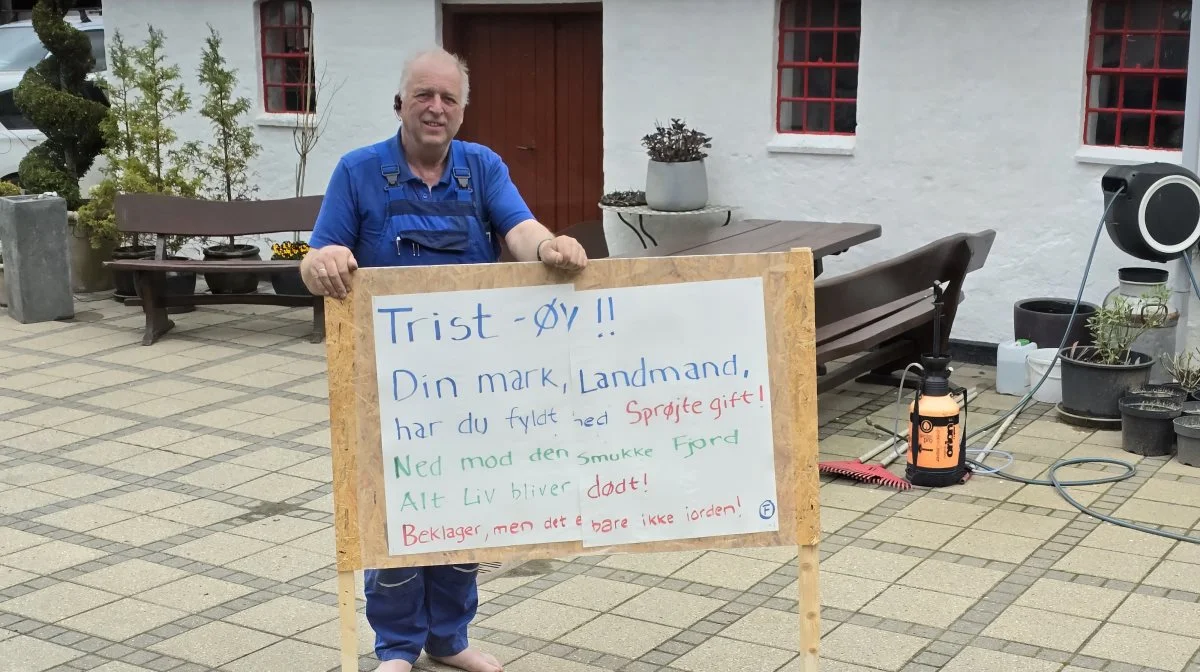 Trist - Øy !!
Din mark, Landmand,
har du fyldt Sprøjte gift!
Ned mod den smukke Fjord
Alt Liv bliver dødt!
Beklager, men det bare ikke iorden!
F